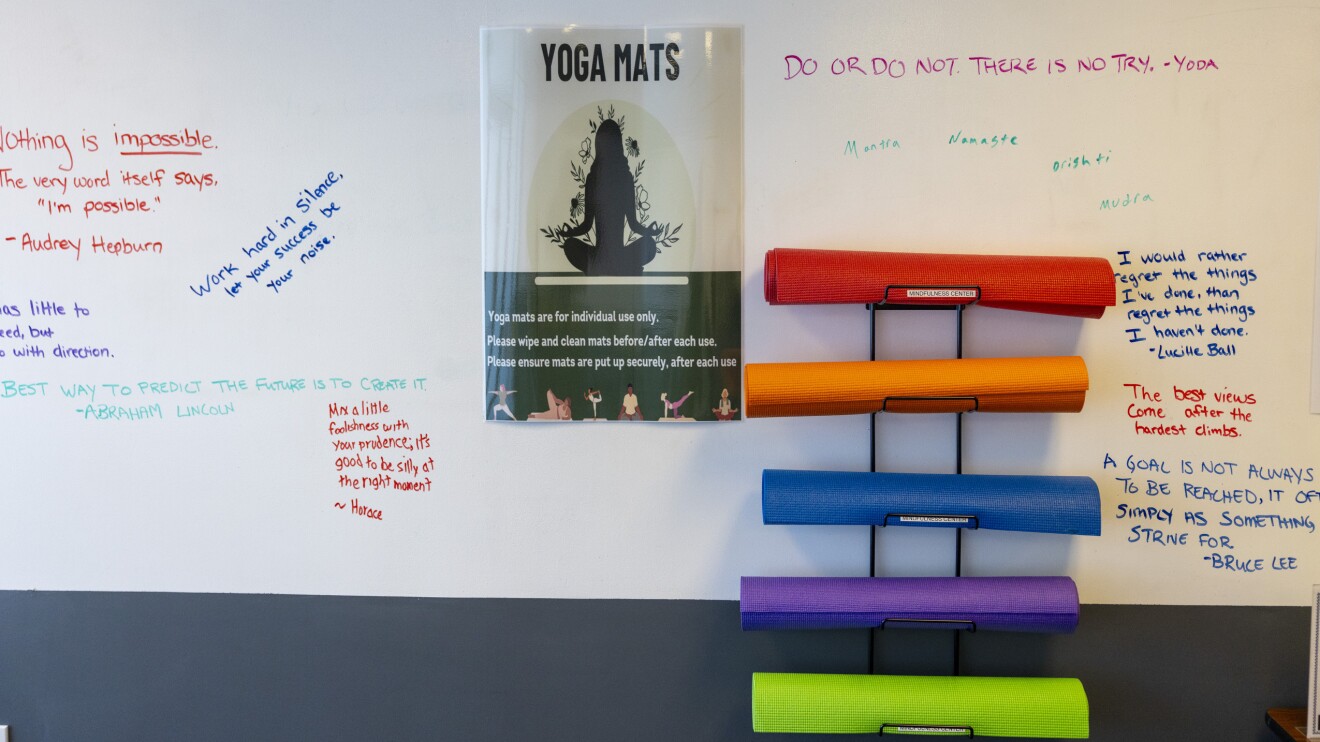 Nothing is impossible.
The very word itself says,
"I'm possible."
- Audrey Hepburn
Work hard in silence,
let your success be
your noise.
has little to
eed, but
o with direction.
BEST WAY TO PREDICT THE FUTURE IS TO CREATE IT.
-ABRAHAM LINCOLN
Mix a little
foolishness with
your prudence; it's
good to be silly at
the right moment
~ Horace
YOGA MATS
Yoga mats are for individual use only.
Please wipe and clean mats before/after each use.
Please ensure mats are put up securely, after each use
DO OR DO NOT. THERE IS NO TRY. -YODA
Mantra
Namaste
Drishti
Mudra
MINDFULNESS CENTER
MINDFULNESS CENTER
MINDFULNESS CENTER
I would rather
regret the things
I've done, than
regret the things
I haven't done.
-Lucille Ball
The best views
Come after the
hardest climbs.
A GOAL IS NOT ALWAYS
TO BE REACHED, IT OFT
SIMPLY AS SOMETHING
STRIVE FOR
-BRUCE LEE